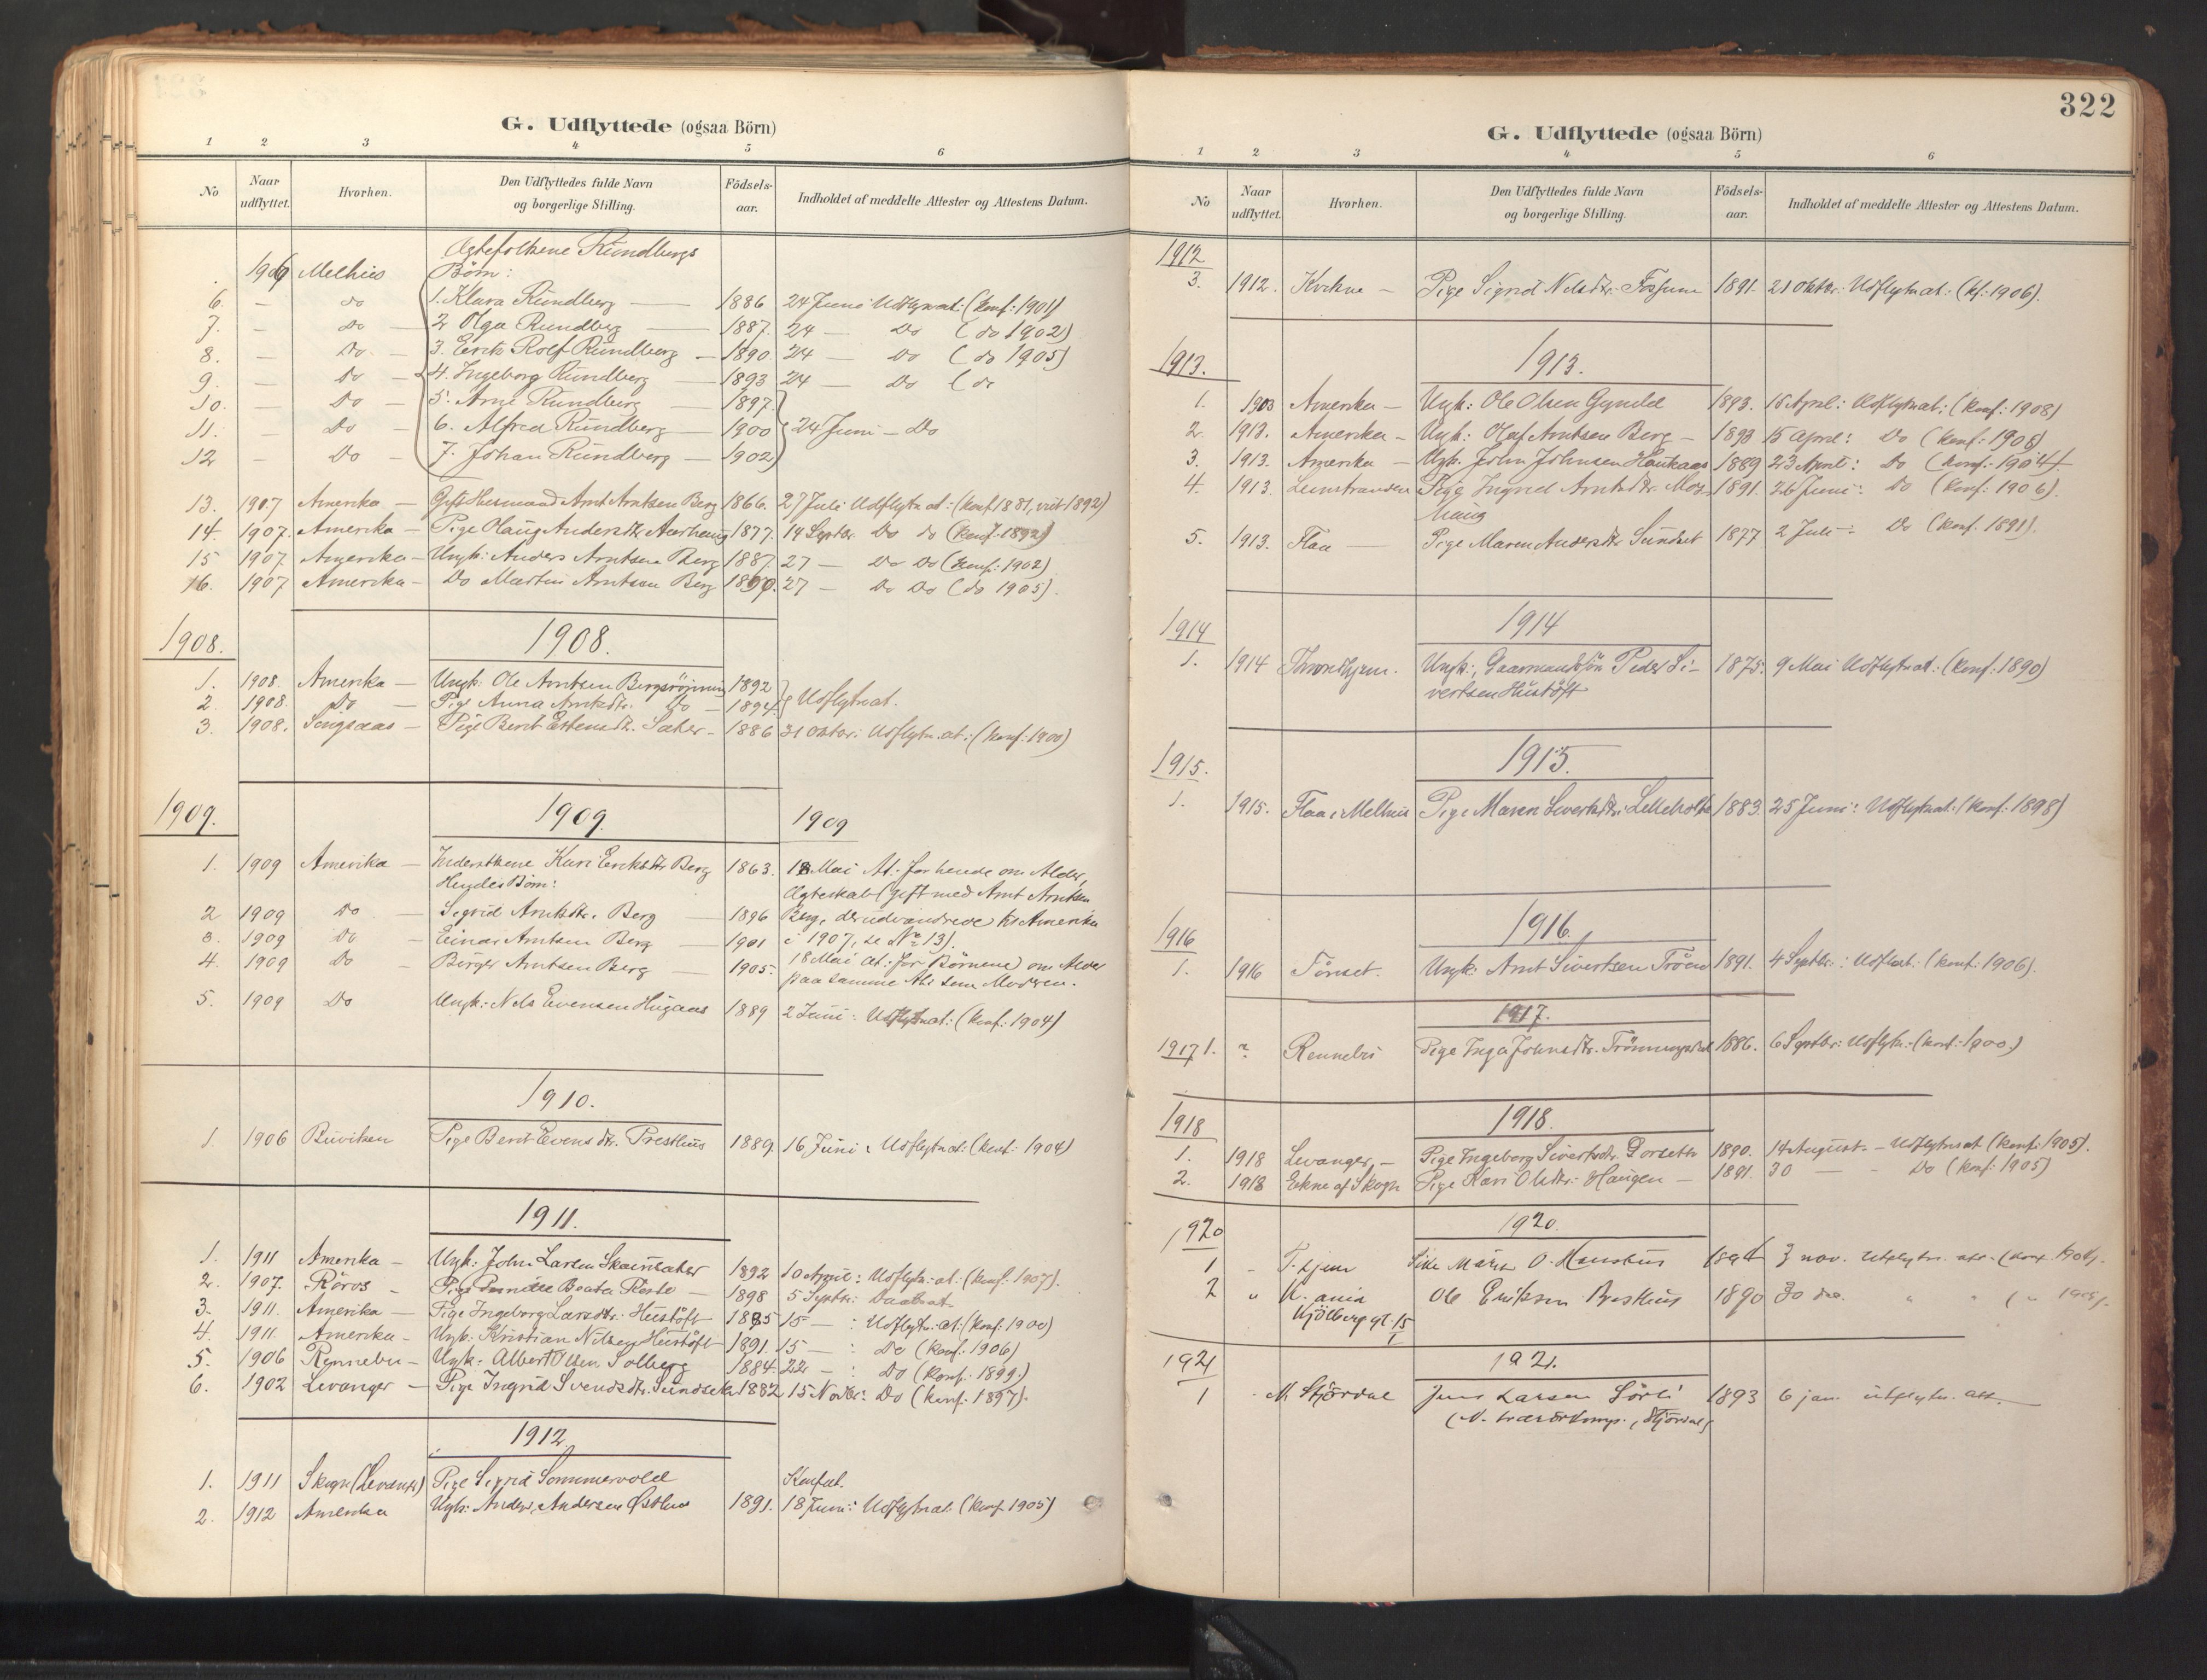 G. Udflyttede (ogsaa Börn)
1 2 3 4 5 6
No Naar udflyttet. Hvorhen. Den Udflyttedes fulde Navn og borgerlige Stilling. Födsels-aar. Indholdet af meddelte Attester og Attestens Datum.
Ægtefolkene Rundbergs
1909 Melhus Börn:
6. — do 1. Klara Rundberg — 1886 24 Juni Udflytnat: (Konf: 1901)
7. — Do — 2 Olga Rundberg — 1887. 24 — Do (do 1902)
8. — Do — 3. Erik Rolf Rundberg — 1890. 24 — Do (do 1905)
9. — Do — 4. Ingeborg Rundberg — 1893 24 — Do (do
10. — Do — 5. Arne Rundberg — 1897.
11. — Do — 6. Alfred Rundberg — 1900 24 Juni — Do
12 — Do — 7. Johan Rundberg — 1902
13. 1907 Amerika — Gift Husmand Arnt Arntsen Berg 1866. 27 Juli Udflytn at: (Konf 1881, viet 1892)
14. 1907. Amerika — Pige Olaug Andersdtr Aarhaug 1877. 14 Septbr. Do do (Konf: 1892)
15 1907. Amerika — Ungk: Anders Arntsen Berg 1887. 27 — Do Do (Konf: 1902)
16. 1907 Amerika — Do Martin Arntsen Berg 1890. 27 — Do Do (do 1905).
1908. 1908.
1. 1908. Amerika — Ungk: Ole Arntsen Bergsrönning 1892
2. 1908. Do — Pige Anna Arntsdtr. Do — 1894. Udflytnat.
3. 1908. Singsaas — Pige Berit Estensdtr. Sæter — 1886 31 Oktbr: Udflytn. at: (Konf: 1900)
1909. 1909. 1909
1. 1909 Amerika — Inderstkone Kari Eriksdtr Berg 1863. 18 Mai At: for hende om Alder,
Hendes Börn: Ægteskab (gift med Arnt Arntsen
2 1909 Do — Sigrid Arntsdtr. Berg 1896 Berg, der udvandrede til Amerika
3. 1909 Do — Einar Arntsen Berg — 1901 i 1907, se No 13).
4. 1909 Do — Birger Arntsen Berg — 1905. 18 Mai At: for Börnene om Alder
paa samme At: som Moderen.
5. 1909 Do Ungk: Nels Evensen Hugaas 1889 2 Juni: Udflytnat: (Konf: 1904)
1910.
1. 1906 Buviken Pige Berit Evensdtr. Presthus 1889. 16 Juni: Udflytnat: (Konf: 1904)
1911.
1. 1911 Amerika — Ungk: John Larsen Skaursæter 1892 10 April: Udflytn: at: (Konf: 1907).
2. 1907. Röros — Pige Beata — 1898 5 Septbr: Daabsat.
3. 1911. Amerika — Pige Ingeborg Larsdtr. Hustöft 1885 15 — : Udflytn: at: (Konf: 1900)
4. 1911. Amerika — Ungk: Kristian Nilsen Hustöft 1891. 15 — : Do (Konf: 1906)
5. 1906 Rennebu — Ungk: Albert Olsen Solberg 1884. 22 — : Do (Konf: 1899.)
6. 1902 Levanger — Pige Ingrid Svendsdtr. Sundset 1882 15 Novbr: Do (Konf: 1897).
1912
1. 1911 Skogn (Levanger) Pige Sigrid Sommervold Konfat.
2. 1912 Amerika Ungk: Anders Andersen 1891. 18 Juni: Udflytnat. (Konf 1905)
322
G. Udflyttede (ogsaa Börn)
1 2 3 4 5 6
No Naar udflyttet. Hvorhen. Den Udflyttedes fulde Navn og borgerlige Stilling. Födsels-aar. Indholdet af meddelte Attester og Attestens Datum.
1912
3. 1912. Kvikne — Pige Sigrid Nelsdtr. Fossum 1891. 21 Oktbr: Udflytnat: (kf: 1906).
1913. 1913.
1. 1903 Amerika — Ungk: Ole Olsen Gynnild 1893. 15 April: Udflytnat: (Konf: 1908)
2. 1913. Amerika — Ungk: Olaf Arntsen Berg — 1893 15 April: Do (Konf: 1908)
3. 1913. Amerika — Ungk. John Johnsen Haukaas 1889 23 April: Do (Konf: 1904)
4. 1913. Leinstranden Pige Ingrid Arntsdtr. Mos 1891. 26 Juni: Do (Konf: 1906).
haug
5. 1913. Flaa — Pige Maren Andersdtr Sundset 1877 2 Juli: Do (Konf. 1891).
1914 1914
1. 1914 Throndhjem. Ungk: Gaarmandssön Peder Si- 1875. 9 Mai Udflytnat: (Konf: 1890)
vertsen Hustöft
1915. 1915.
1. 1915. Flaa i Melhus Pige Maren Sivertsdtr. 1883. 25 Juni: Udflytnat: (Konf: 1898)
1916 1916.
1. 1916 Tönset. Ungk: Arnt Sivertsen Tröen 1891. 4 Septbr: Udflnat: (Konf: 1906).
1917.
1917 1. ? Rennebu Pige Inga Johnsdtr. 1886. 6 Septbr: Udflytn: (Konf: 1900.)
1918 1918.
1. 1918 Levanger — Pige Ingeborg Sivertsdtr. Dorseth 1890. 14 August. — Udflytnat (Konf: 1905).
2. 1918 Ekne af Skogn Pige Kari Olsdtr: Haugen — 1891. 30 — Do (Konf: 1905)
1920 1920.
1 " T.hjem O. 1894 3 nov. Utflytn. att. (konf.
2 " K.ania Ole Eriksen Presthus 1890 30 " " ( "
Kjölberggt. 15/I
1921 1921.
1 " N. Stjördal Jens Larsen Sörli 1893 6 jan. utflytn. att.